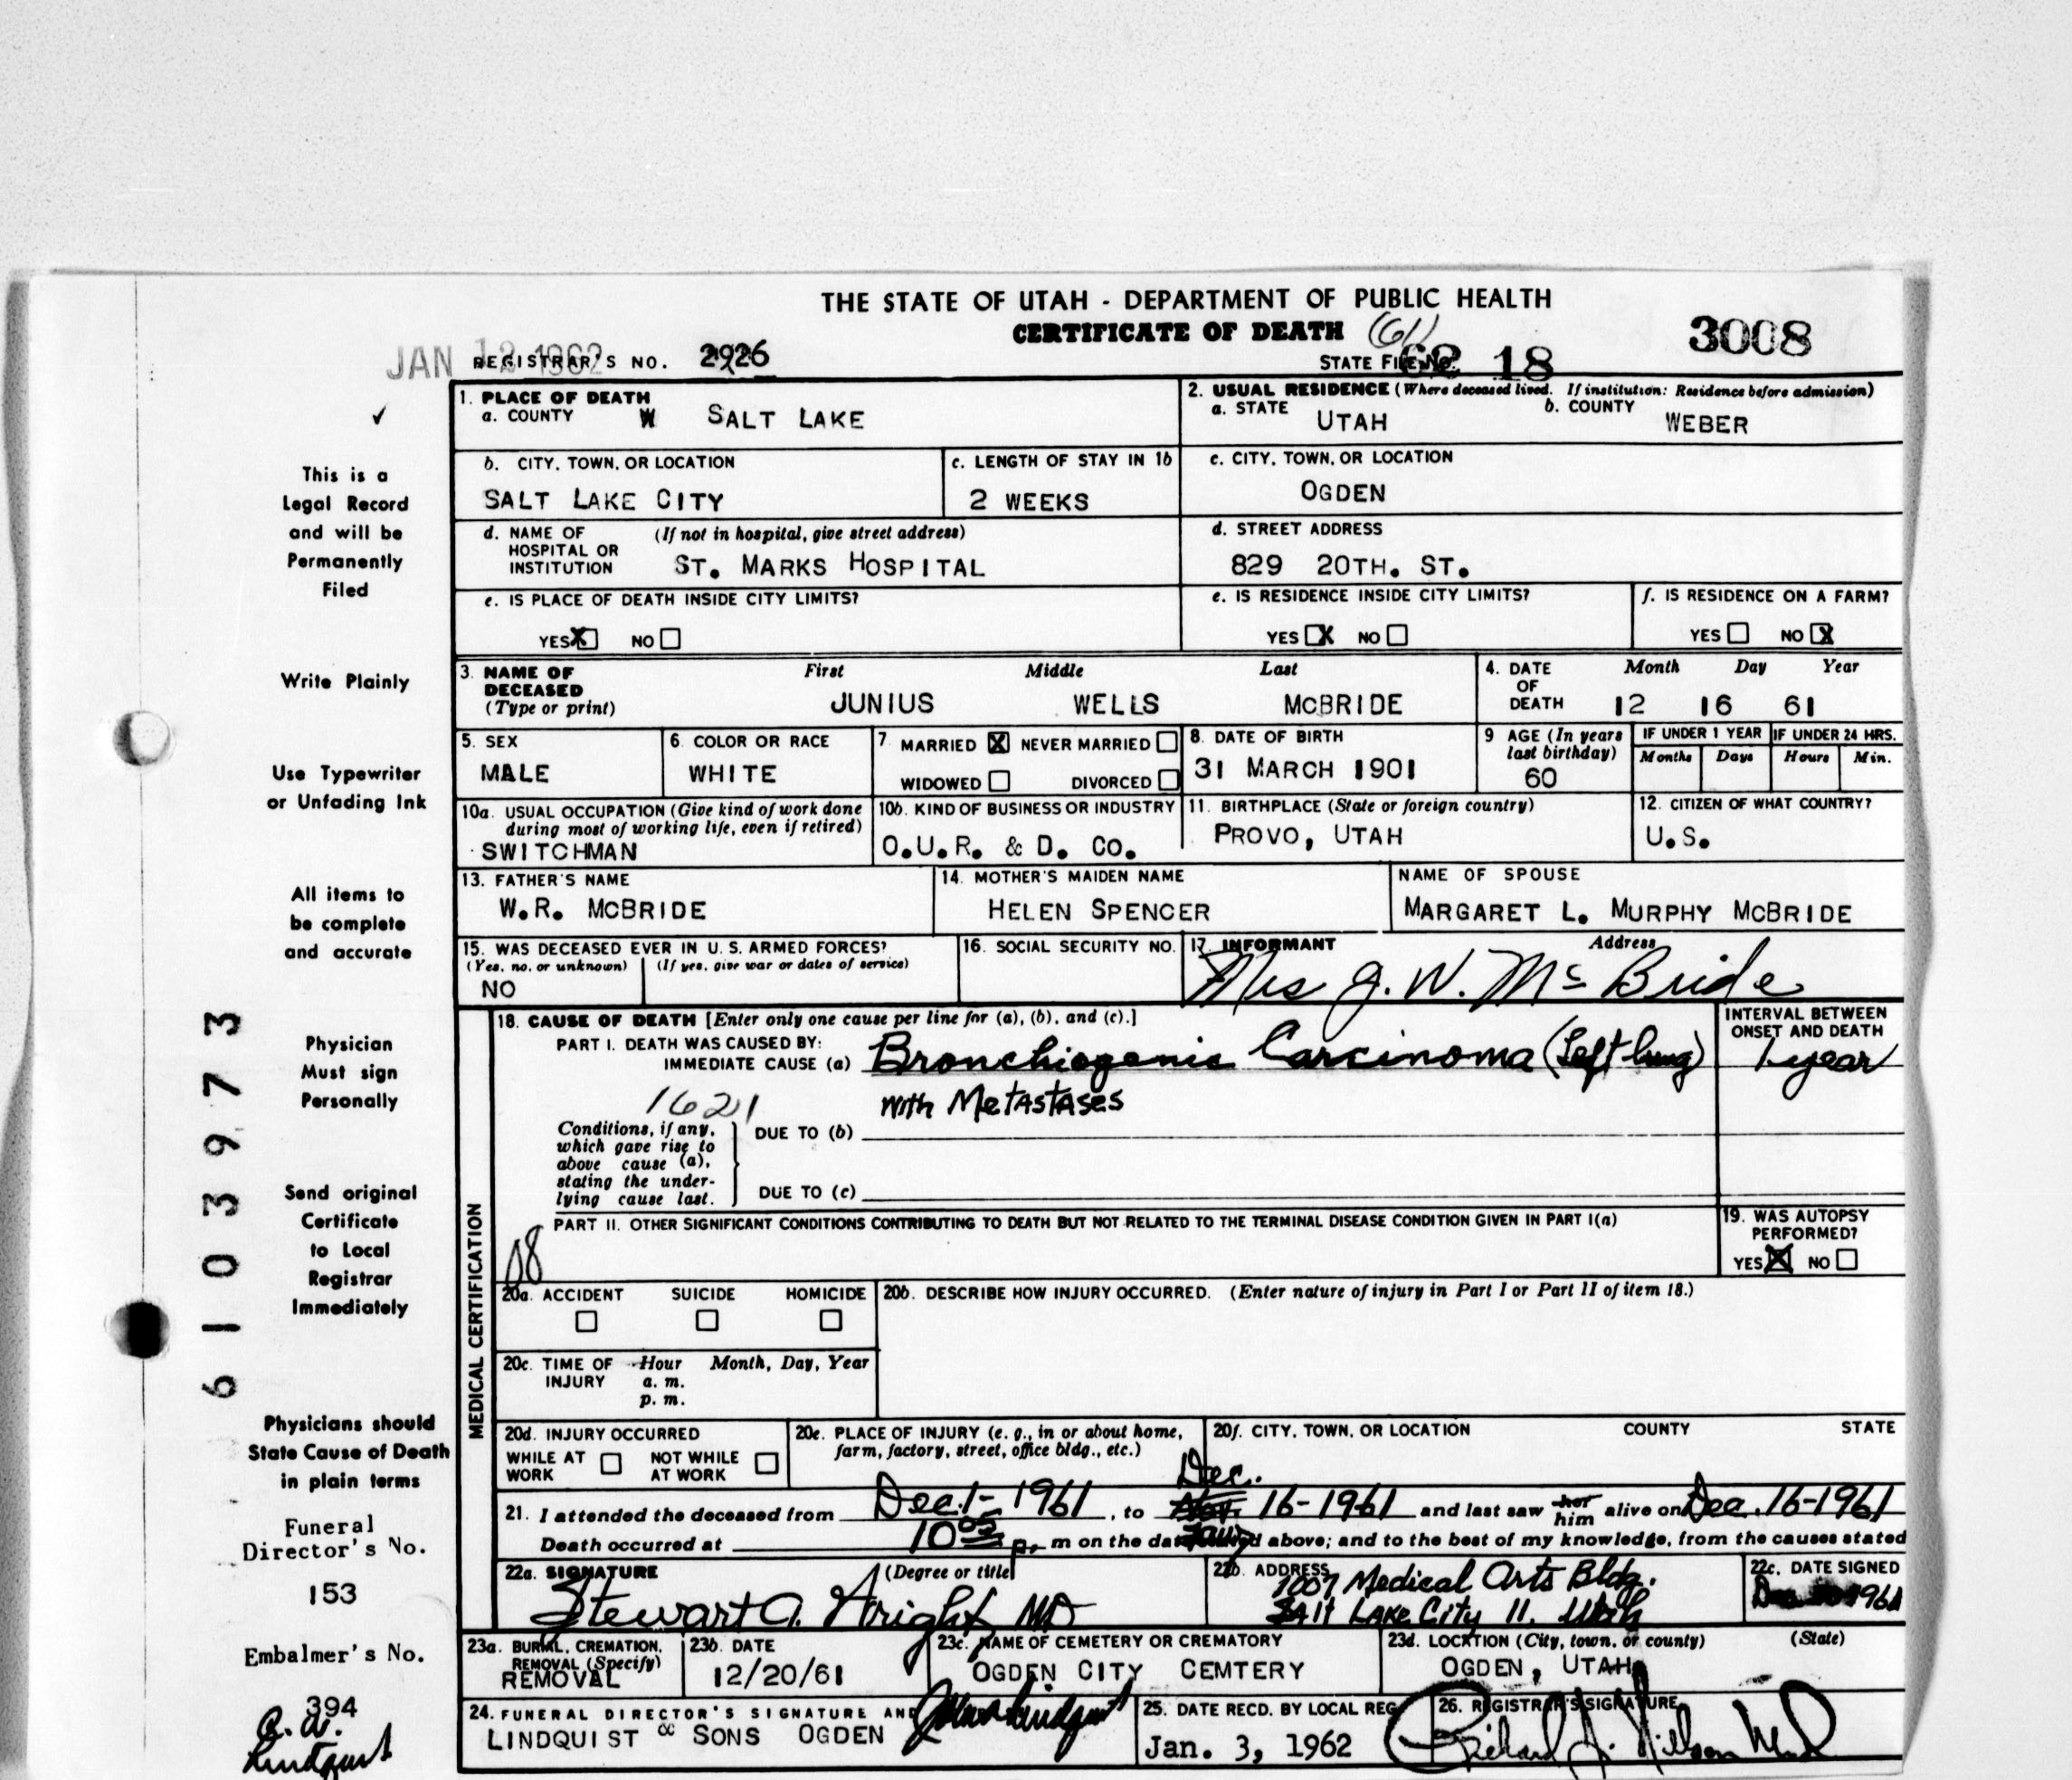 THE STATE OF UTAH - DEPARTMENT OF PUBLIC HEALTH
CERTIFICATE OF DEATH (61) 3008
JAN 12 1962 REGISTRAR'S NO. 2926 STATE FILE NO. 62 18
1. PLACE OF DEATH
a. COUNTY W SALT LAKE
2. USUAL RESIDENCE (Where deceased lived. If institution: Residence before admission)
a. STATE UTAH b. COUNTY WEBER
b. CITY, TOWN, OR LOCATION SALT LAKE CITY
c. LENGTH OF STAY IN 1b 2 WEEKS
c. CITY, TOWN, OR LOCATION OGDEN
d. NAME OF HOSPITAL OR INSTITUTION (If not in hospital, give street address) ST. MARKS HOSPITAL
d. STREET ADDRESS 829 20TH. ST.
e. IS PLACE OF DEATH INSIDE CITY LIMITS?
YES X NO
e. IS RESIDENCE INSIDE CITY LIMITS?
YES X NO
f. IS RESIDENCE ON A FARM?
YES NO X
3. NAME OF DECEASED (Type or print) First Middle Last
JUNIUS WELLS McBRIDE
4. DATE OF DEATH Month Day Year
12 16 61
5. SEX MALE
6. COLOR OR RACE WHITE
7 MARRIED X NEVER MARRIED
WIDOWED DIVORCED
8. DATE OF BIRTH 31 MARCH 1901
9 AGE (In years last birthday) 60
IF UNDER 1 YEAR Months Days
IF UNDER 24 HRS. Hours Min.
10a. USUAL OCCUPATION (Give kind of work done during most of working life, even if retired)
SWITCHMAN
10b. KIND OF BUSINESS OR INDUSTRY
O.U.R. & D. CO.
11. BIRTHPLACE (State or foreign country)
PROVO, UTAH
12. CITIZEN OF WHAT COUNTRY?
U.S.
13. FATHER'S NAME
W.R. McBRIDE
14. MOTHER'S MAIDEN NAME
HELEN SPENCER
NAME OF SPOUSE
MARGARET L. MURPHY McBRIDE
15. WAS DECEASED EVER IN U.S. ARMED FORCES?
(Yes, no, or unknown) (If yes, give war or dates of service)
NO
16. SOCIAL SECURITY NO.
17. INFORMANT Address
Mrs J. W. McBride
MEDICAL CERTIFICATION
18. CAUSE OF DEATH [Enter only one cause per line for (a), (b), and (c).]
INTERVAL BETWEEN ONSET AND DEATH
PART I. DEATH WAS CAUSED BY:
IMMEDIATE CAUSE (a) Bronchiogenic Carcinoma (Left lung) 1-year
with Metastases
1621
Conditions, if any, which gave rise to above cause (a), stating the underlying cause last.
DUE TO (b)
DUE TO (c)
PART II. OTHER SIGNIFICANT CONDITIONS CONTRIBUTING TO DEATH BUT NOT RELATED TO THE TERMINAL DISEASE CONDITION GIVEN IN PART I(a)
08
19. WAS AUTOPSY PERFORMED?
YES X NO
20a. ACCIDENT SUICIDE HOMICIDE
20b. DESCRIBE HOW INJURY OCCURRED. (Enter nature of injury in Part I or Part II of item 18.)
20c. TIME OF INJURY Hour Month, Day, Year
a. m.
p. m.
20d. INJURY OCCURRED
WHILE AT WORK NOT WHILE AT WORK
20e. PLACE OF INJURY (e. g., in or about home, farm, factory, street, office bldg., etc.)
20f. CITY, TOWN, OR LOCATION COUNTY STATE
21. I attended the deceased from Dec. 1- 1961, to Dec. Nov. 16-1961 and last saw her him alive on Dec. 16-1961
Death occurred at 10 00 p. m on the date above; and to the best of my knowledge, from the causes stated
22a. SIGNATURE (Degree or title)
Stewart A. Wright MD
22b. ADDRESS
1007 Medical Arts Bldg.
Salt Lake City 11, Utah
22c. DATE SIGNED
Dec 1961
23a. BURIAL, CREMATION, REMOVAL (Specify)
REMOVAL
23b. DATE
12/20/61
23c. NAME OF CEMETERY OR CREMATORY
OGDEN CITY CEMTERY
23d. LOCATION (City, town, or county) (State)
OGDEN, UTAH
24. FUNERAL DIRECTOR'S SIGNATURE AND
LINDQUIST & SONS OGDEN
25. DATE RECD. BY LOCAL REG
Jan. 3, 1962
26. REGISTRAR'S SIGNATURE
✓
This is a
Legal Record
and will be
Permanently
Filed
Write Plainly
Use Typewriter
or Unfading Ink
All items to
be complete
and accurate
Physician
Must sign
Personally
Send original
Certificate
to Local
Registrar
Immediately
Physicians should
State Cause of Death
in plain terms
Funeral
Director's No.
153
Embalmer's No.
394
Lindquist
6103973